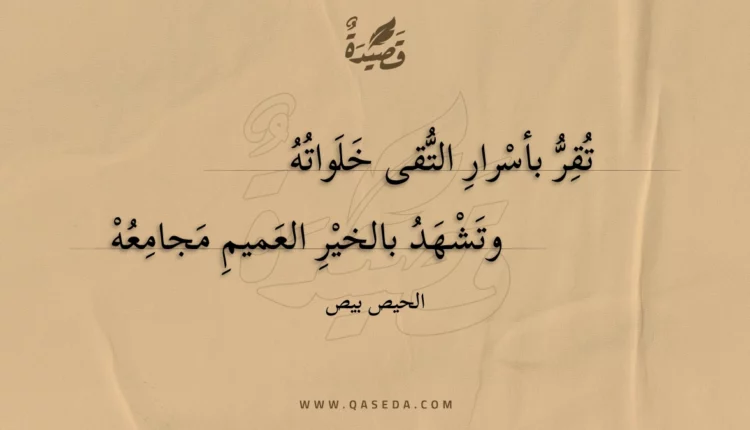 قَصِيدَةٌ
تُقِرُّ بأسْرارِ التُّقى خَلَواتُهُ
وتَشْهَدُ بالخيْرِ العَميمِ مَجامِعُهْ
الحيص بيص
WWW.QASEDA.COM